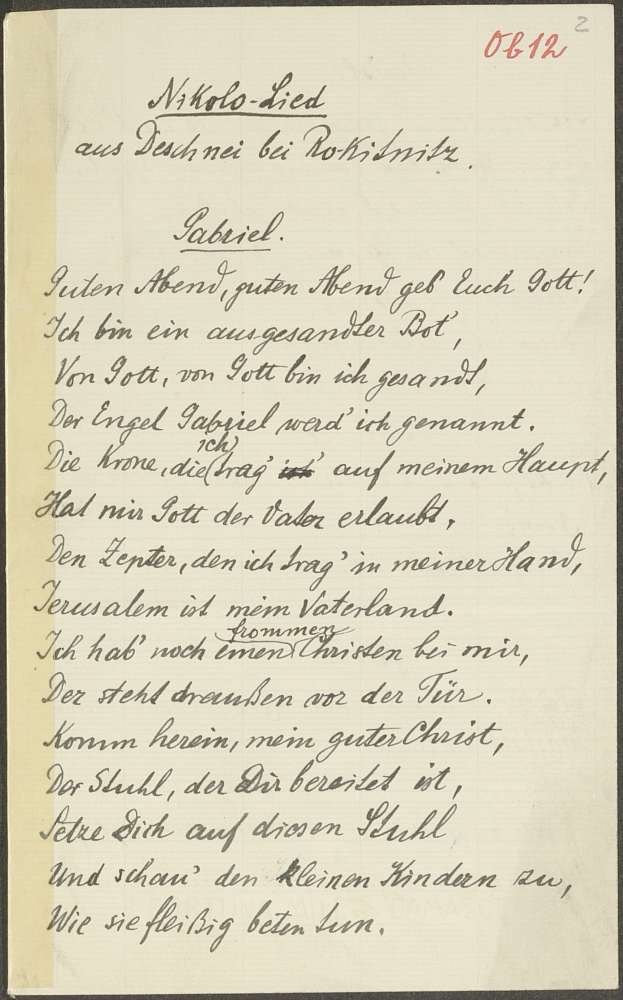 2
Ob12
Nikolo-Lied
aus Deschnei bei Rokitnitz.
Gabriel.
Guten Abend, guten Abend geb' Euch Gott!
Ich bin ein ausgesandter Bot',
Von Gott, von Gott bin ich gesandt,
Der Engel Gabriel werd' ich genannt.
Die Krone, die ich trag' auf meinem Haupt,
Hat mir Gott der Vater erlaubt,
Den Zepter, den ich trag' in meiner Hand,
Jerusalem ist mein Vaterland.
Ich hab' noch einen frommen Christen bei mir,
Der steht draußen vor der Tür.
Komm herein, mein guter Christ,
Der Stuhl, der Dir bereitet ist,
Setze Dich auf diesen Stuhl
Und schau' den kleinen Kindern zu,
Wie sie fleißig beten tun.